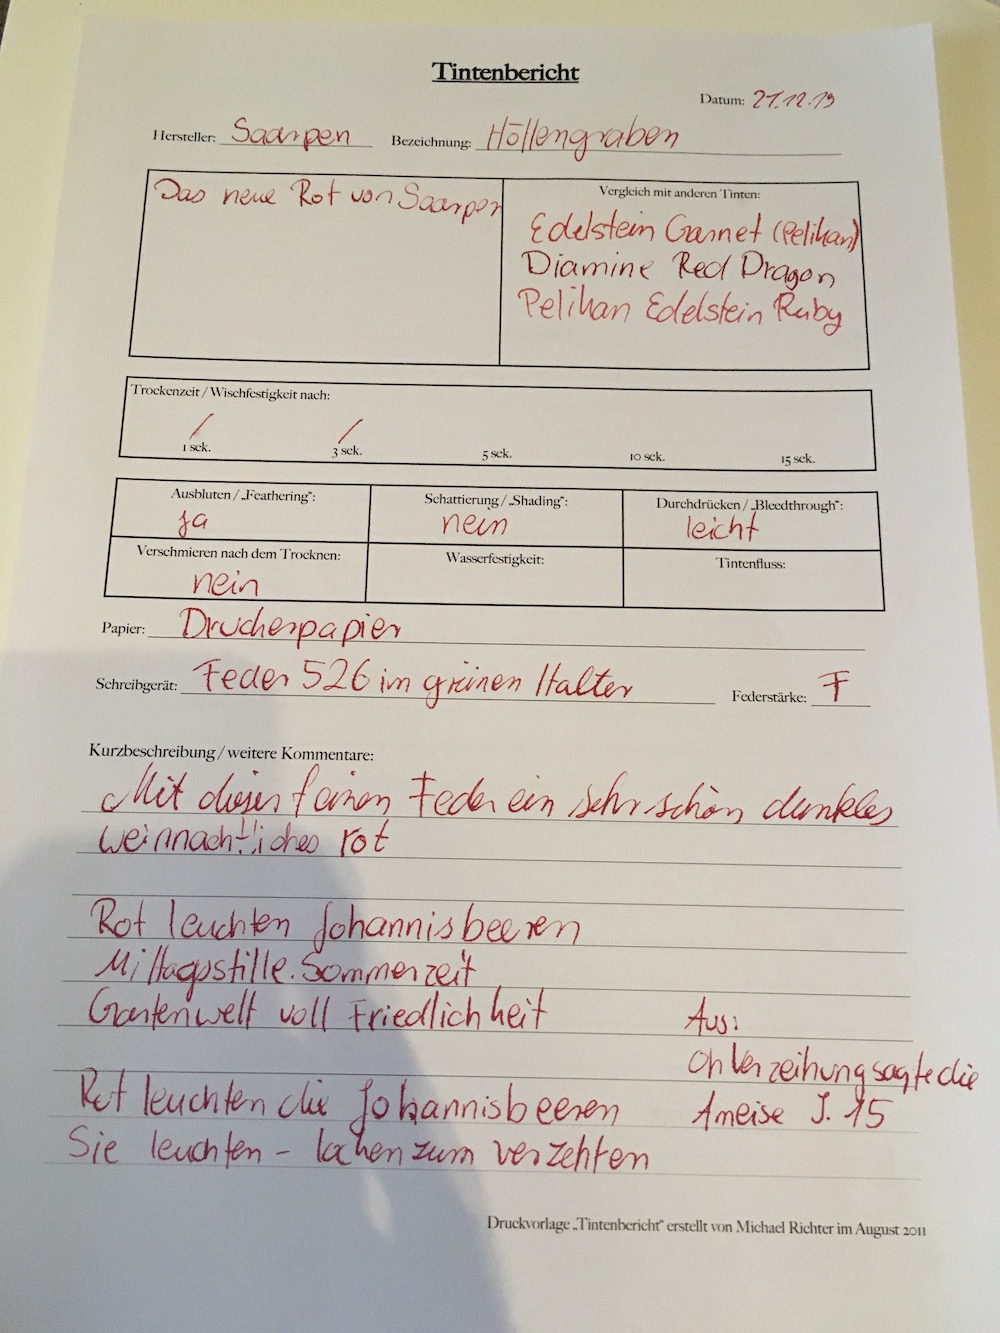 Tintenbericht
Datum: 21.12.19
Hersteller: Saarpen Bezeichnung: Höllengraben
Das neue Rot von Saarpen
Vergleich mit anderen Tinten:
Edelstein Garnet (Pelikan)
Diamine Red Dragon
Pelikan Edelstein Ruby
Trockenzeit / Wischfestigkeit nach:
1 sek. 3 sek. 5 sek. 10 sek. 15 sek.
Ausbluten / „Feathering“: Schattierung / „Shading“: Durchdrücken / „Bleedthrough“:
ja nein leicht
Verschmieren nach dem Trocknen: Wasserfestigkeit: Tintenfluss:
nein
Papier: Druckerpapier
Schreibgerät: Feder 526 im grünen Halter Federstärke: F
Kurzbeschreibung / weitere Kommentare:
Mit dieser feinen Feder ein sehr schön dunkles
weihnachtliches rot
Rot leuchten Johannisbeeren
Mittagsstille. Sommerzeit
Gartenwelt voll Friedlichkeit
Aus:
Oh Verzeihung sagte die
Rot leuchten die Johannisbeeren
Ameise S. 15
Sie leuchten - locken zum verzehren
Druckvorlage „Tintenbericht“ erstellt von Michael Richter im August 2011